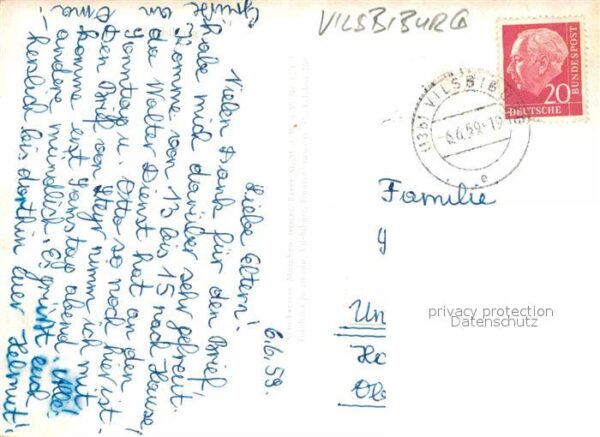 VILSBIBURG
20
DEUTSCHE
BUNDESPOST
(13b) VILSBIBURG
-6.6.59.-19
e
6.6.59.
Liebe Eltern!
Vielen Dank für den Brief,
habe mich darüber sehr gefreut.
Komme von 13 bis 15 nach Hause
da Walter Dienst hat an den
Sonntag u. Otto so noch hier ist.
Den Brief von Steyr nimm ich mit
komme erst Samstag abend. Alles
andere mündlich. Es grüßt euch
herzlich bis dorthin Euer Helmut!
Grüße an
Oma!
Familie
Un
Ha
Obe
privacy protection
Datenschutz